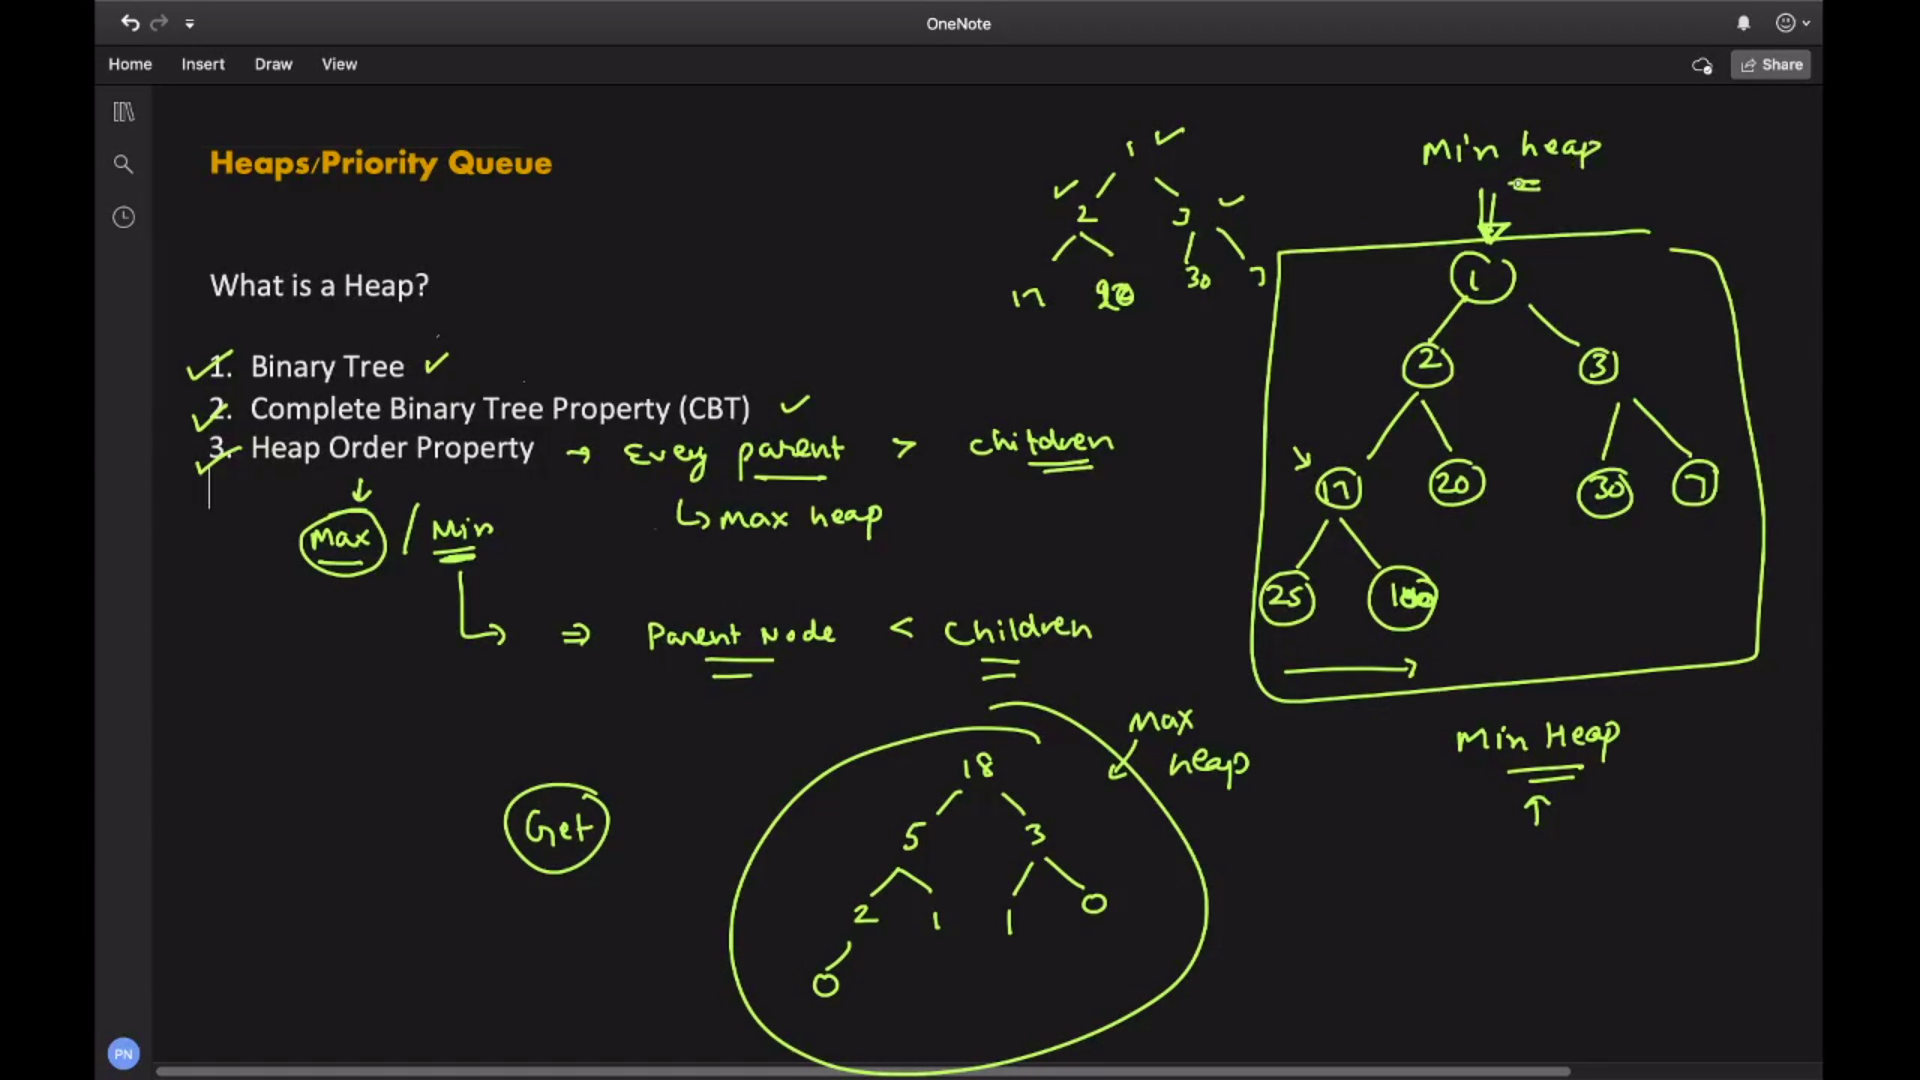 OneNote
Home Insert Draw View
Share
Heaps/Priority Queue
What is a Heap?
1. Binary Tree
2. Complete Binary Tree Property (CBT)
3. Heap Order Property → Every parent > children
↳ max heap
Max / Min
⇒ Parent Node < Children
Get
1
2 3
17 20 30 7
Min heap
1
2 3
17 20 30 7
25 100
Min Heap
Max
heap
18
5 3
2 1 1 0
0
PN